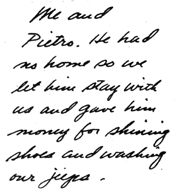 Me and
Pietro. He had
no home so we
let him stay with
us and gave him
money for shining
shoes and washing
our jeeps.